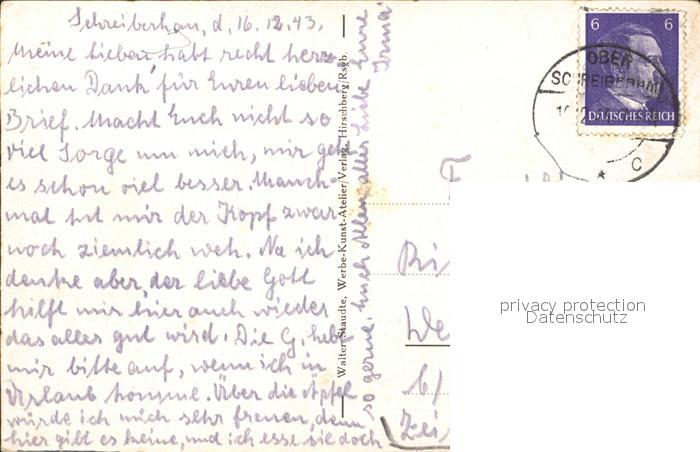 Schreiberhau, d. 16.12.43.
Meine Lieben, habt recht herz-
lichen Dank, für Euren lieben
Brief. Macht Euch nicht so
viel Sorge um mich, mir geht
es schon viel besser. Manch-
mal tut mir der Kopf zwar
noch ziemlich weh. Na ich
denke aber, der liebe Gott
hilft mir hier auch wieder
das alles gut wird. Die G. hebt
mir bitte auf, wenn ich in
Urlaub komme. Über die Äpfel
würde ich mich sehr freuen, denn
hier gibt es keine, und ich esse sie doch
so gerne. Euch Allen alles Liebe Eure
Irma
Walter Staudte, Werbe-Kunst-Atelier/Verlag, Hirschberg/Rsgb.
6 6
DEUTSCHES REICH
OBER
SCHREIBERHAU
C
privacy protection
Datenschutz